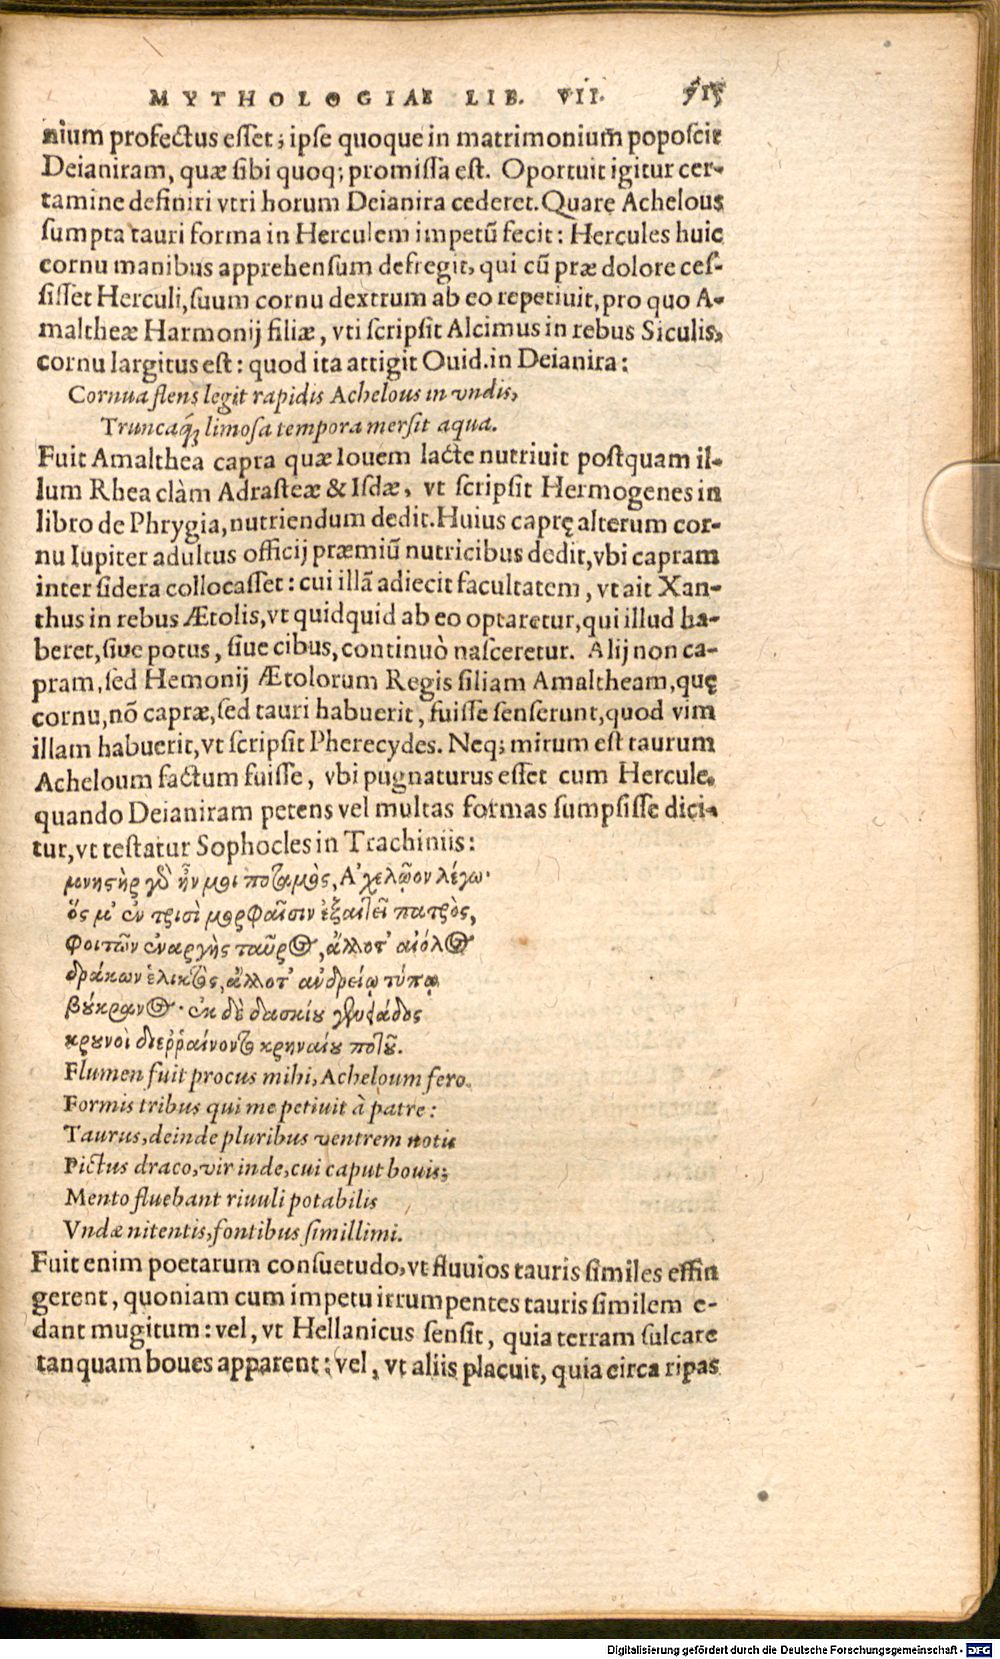 MYTHOLOGIAE LIB. VII. 515
nium profectus esset; ipse quoque in matrimoniũ poposcit
Deianiram, quæ sibi quoq; promissa est. Oportuit igitur cer-
tamine definiri vtri horum Deianira cederet. Quare Achelous
sumpta tauri forma in Herculem impetũ fecit: Hercules huic
cornu manibus apprehensum defregit, qui cũ præ dolore ces-
sisset Herculi, suum cornu dextrum ab eo repetiuit, pro quo A-
maltheæ Harmonij filiæ, vti scripsit Alcimus in rebus Siculis,
cornu largitus est: quod ita attigit Ouid. in Deianira:
Cornua flens legit rapidis Achelous in vndis,
Truncaq́; limosa tempora mersit aqua.
Fuit Amalthea capra quæ Iouem lacte nutriuit postquam il-
lum Rhea clàm Adrasteæ & Isdæ, vt scripsit Hermogenes in
libro de Phrygia, nutriendum dedit. Huius caprę alterum cor-
nu Iupiter adultus officij præmiũ nutricibus dedit, vbi capram
inter sidera collocasset: cui illã adiecit facultatem, vt ait Xan-
thus in rebus Ætolis, vt quidquid ab eo optaretur, qui illud ha-
beret, siue potus, siue cibus, continuò nasceretur. Alij non ca-
pram, sed Hemonij Ætolorum Regis filiam Amaltheam, quę
cornu, nõ capræ, sed tauri habuerit, fuisse senserunt, quod vim
illam habuerit, vt scripsit Pherecydes. Neq; mirum est taurum
Acheloum factum fuisse, vbi pugnaturus esset cum Hercule,
quando Deianiram petens vel multas formas sumpsisse dici-
tur, vt testatur Sophocles in Trachiniis:
μνηςὴρ γὸ ἦν μοι ποταμὸς, Ἀχελῷον λέγω·
ὅς μ' ἐν τρισὶ μορφαῖσιν ἐξαιτεῖ πατρὸς,
φοιτῶν ἐναργὴς ταῦρος, ἄλλοτ' αἰόλος
δράκων ἑλικτὸς, ἄλλοτ' ἀνδρείῳ τύπῳ
βούκρανος· ἐκ δὲ δασκίου γενειάδος
κρουνοὶ διεῤῥαίνοντο κρηναίου ποτοῦ.
Flumen fuit procus mihi, Acheloum fero,
Formis tribus qui me petiuit à patre:
Taurus, deinde pluribus ventrem notis
Pictus draco, vir inde, cui caput bouis;
Mento fluebant riuuli potabilis
Vndæ nitentis, fontibus simillimi.
Fuit enim poetarum consuetudo, vt fluuios tauris similes effin
gerent, quoniam cum impetu irrumpentes tauris similem e-
dant mugitum: vel, vt Hellanicus sensit, quia terram sulcare
tanquam boues apparent: vel, vt aliis placuit, quia circa ripas
Digitalisierung gefördert durch die Deutsche Forschungsgemeinschaft - DFG